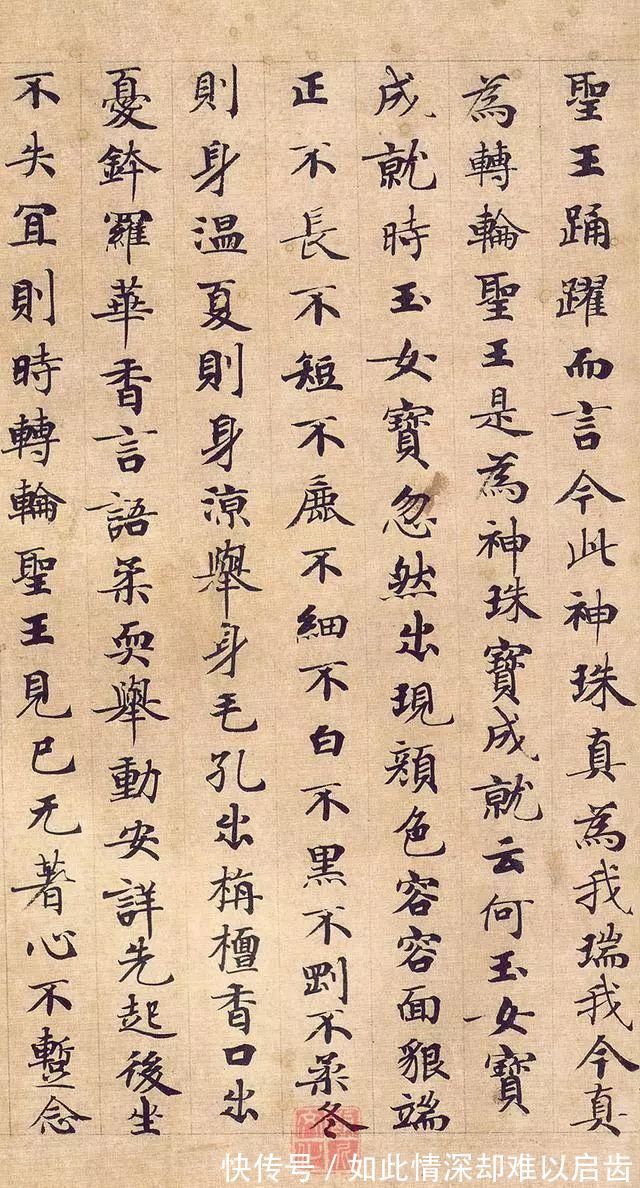 聖王踊躍而言今此神珠真為我瑞我今真
為轉輪聖王是為神珠寶成就云何玉女寶
成就時玉女寶忽然出現顏色容容面貌端
正不長不短不麁不細不白不黑不剛不柔冬
則身温夏則身涼舉身毛孔出栴檀香口出
憂鉢羅華香言語柔耎舉動安詳先起後坐
不失冝則時轉輪聖王見已无著心不蹔念
快传号/如此情深却难以启齿